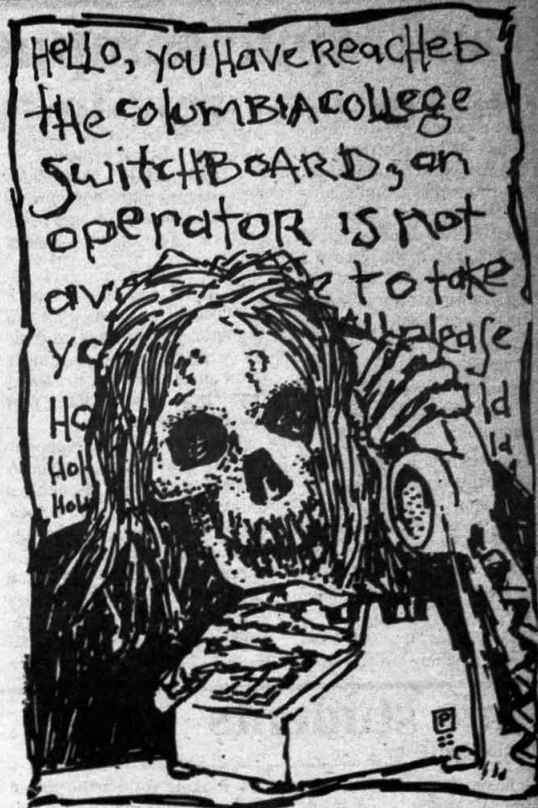 HeLLO, you Have ReacHeD
tHe columBIA college
SwitcHBOARD, an
operatoR is not
to take
please
P